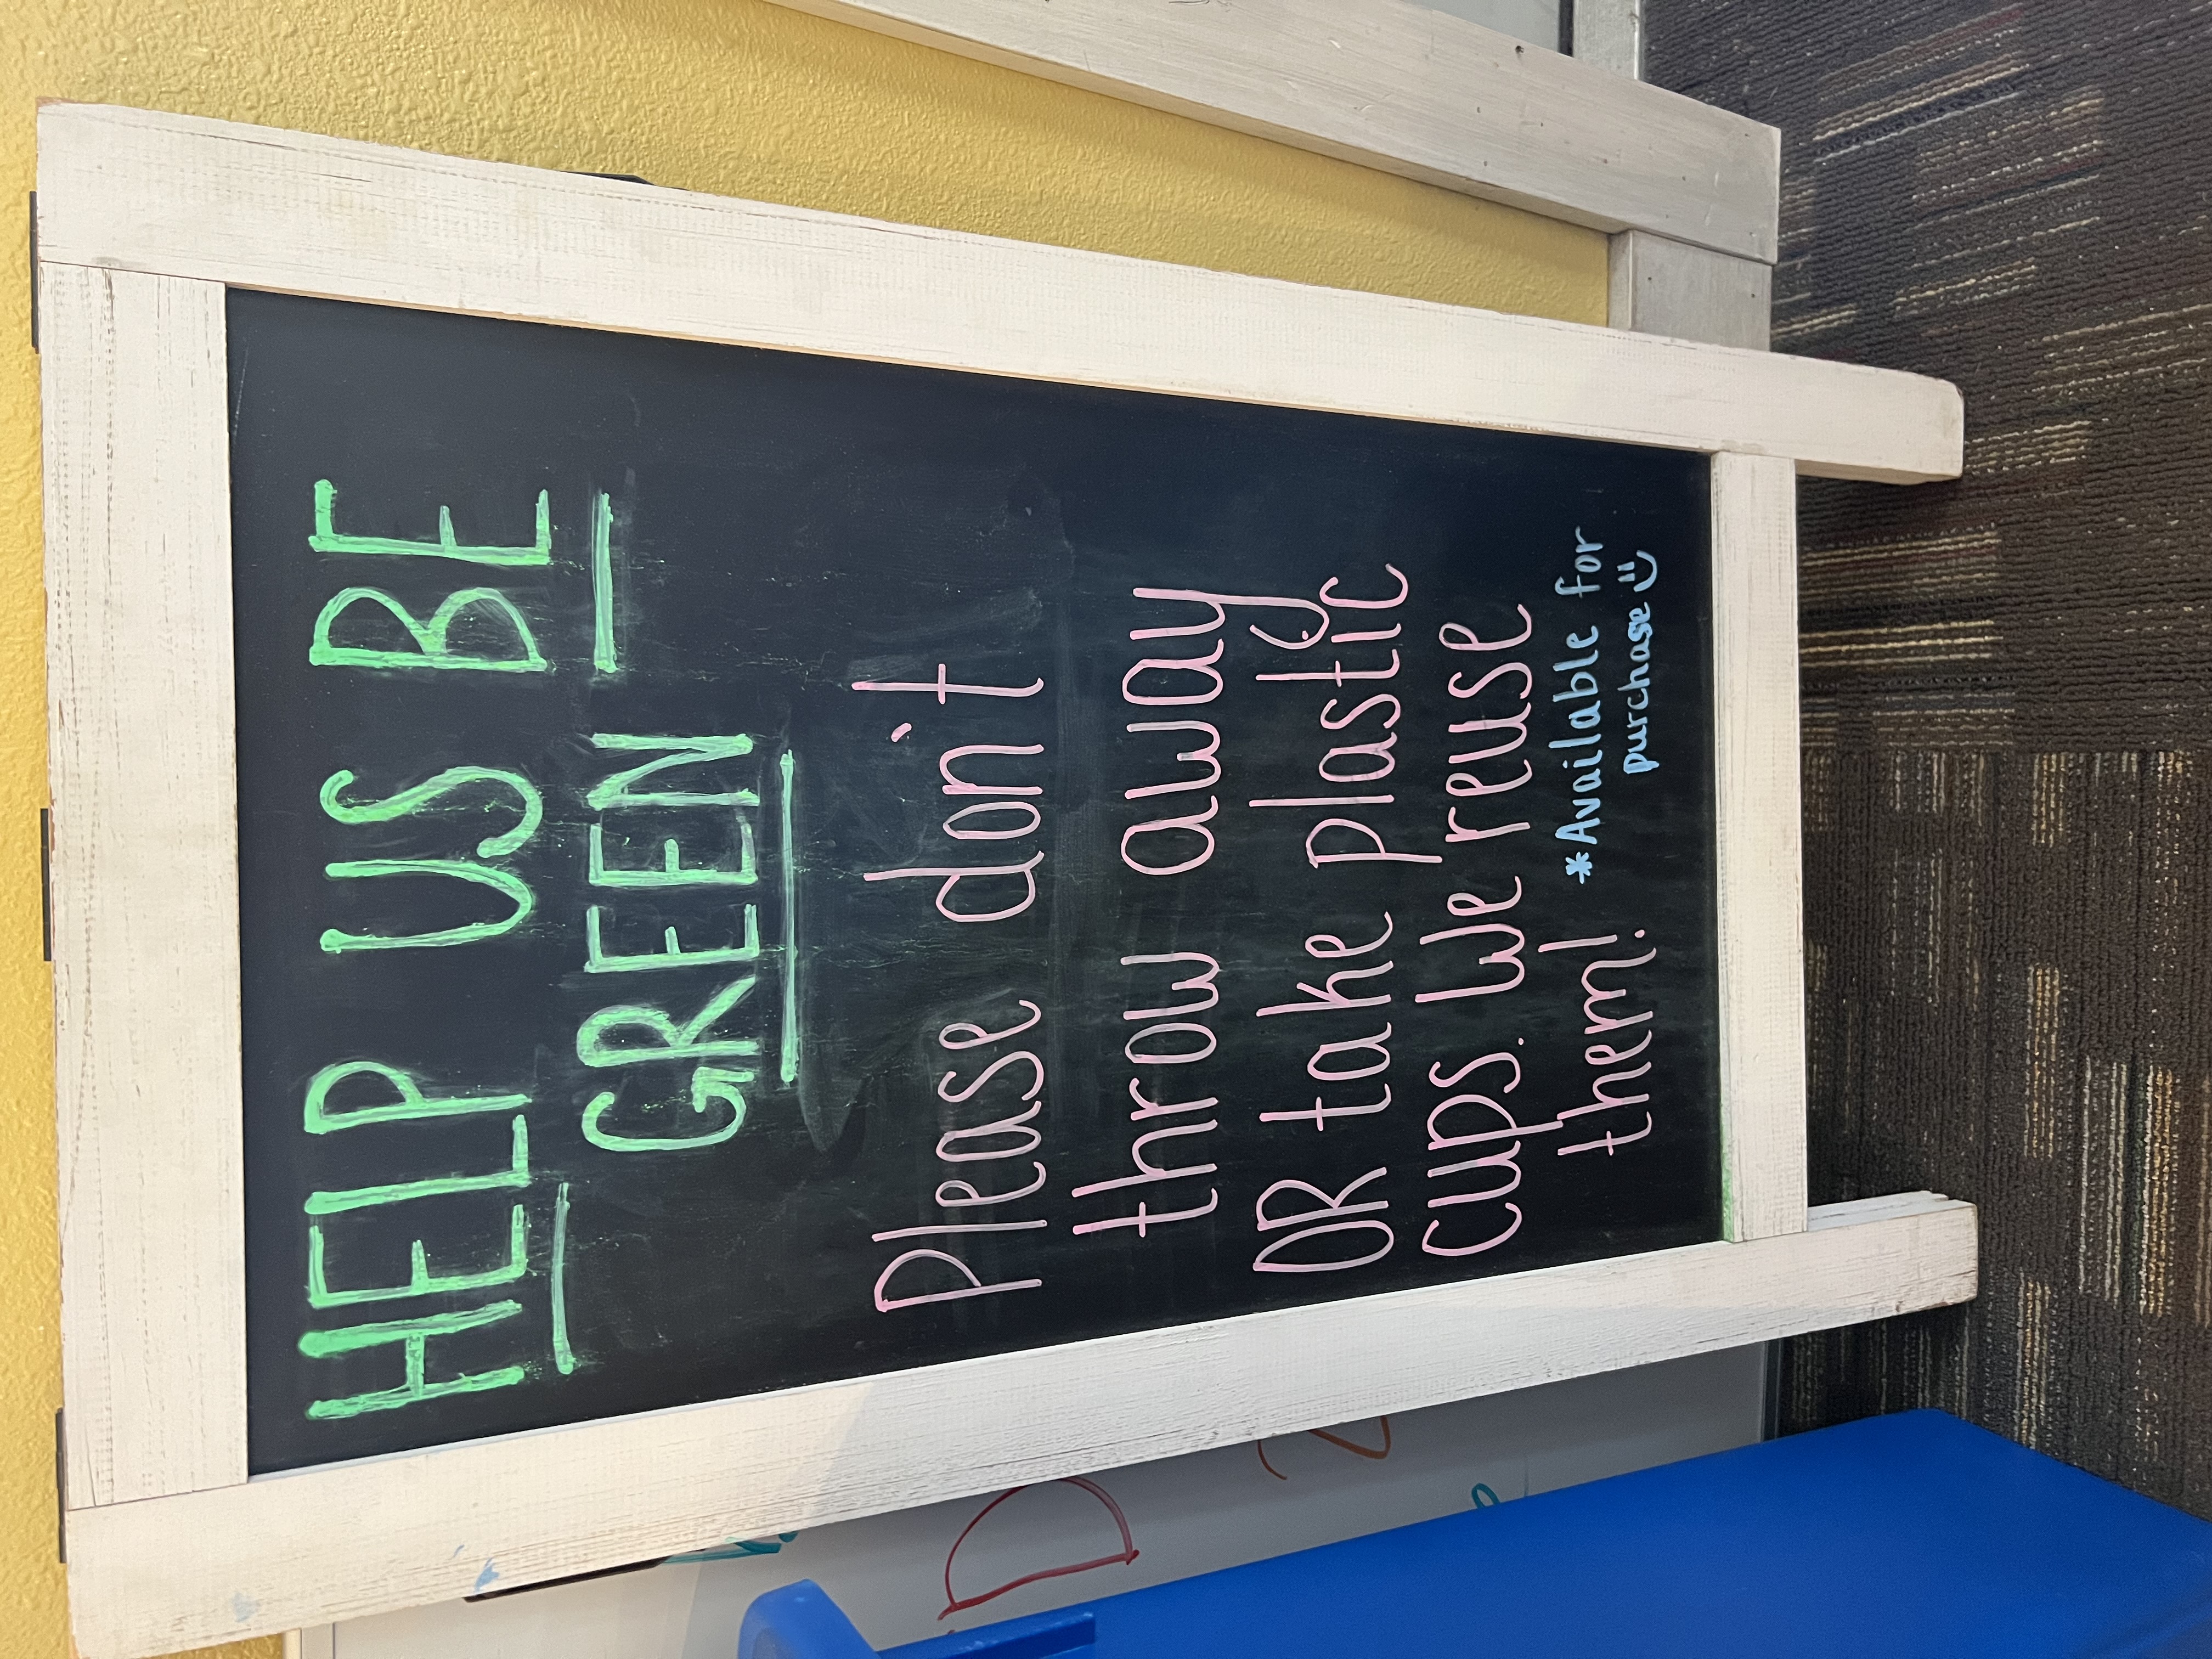 HELP US BE
GREEN
Please don't
throw away
OR take plastic
cups. We reuse
them!
*Available for
purchase